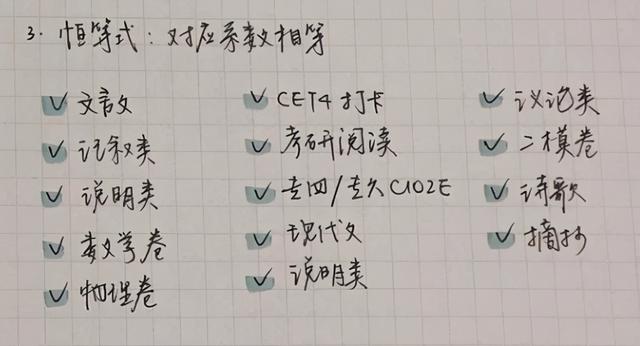 3. 恒等式：对应系数相等
文言文
记叙类
说明类
数学卷
物理卷
CET4 打卡
考研阅读
专四/专八 ClOZE
现代文
说明类
议论类
二模卷
诗歌
摘抄